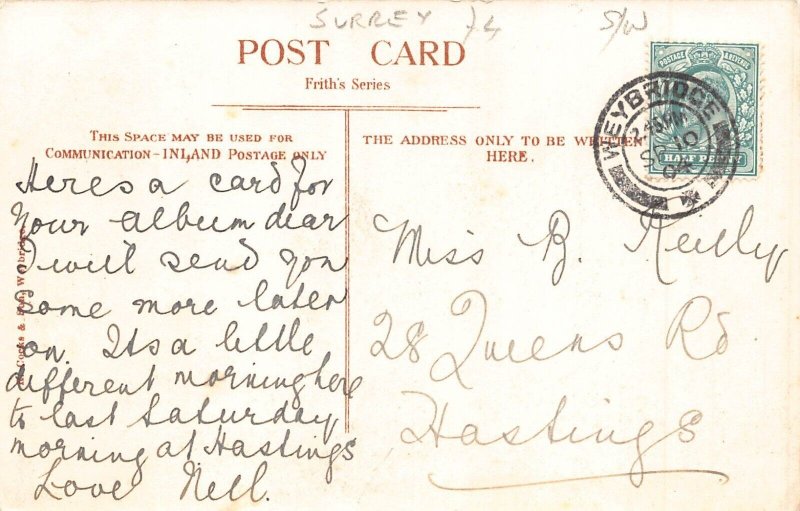 SURREY
S/W
POST CARD
Frith's Series
POSTAGE & REVENUE
WEYBRIDGE
SP 10
04
HALF PENNY
THIS SPACE MAY BE USED FOR
COMMUNICATION-INLAND POSTAGE ONLY
THE ADDRESS ONLY TO BE WRITTEN
HERE.
Heres a card for
your album dear
I will send you
some more later
on. Its a little
different morning here
to last Saturday
morning at Hastings
Love Nell.
Cocks & Son, Weybridge.
Miss B. Reilly
28 Queens Rd.
Hastings